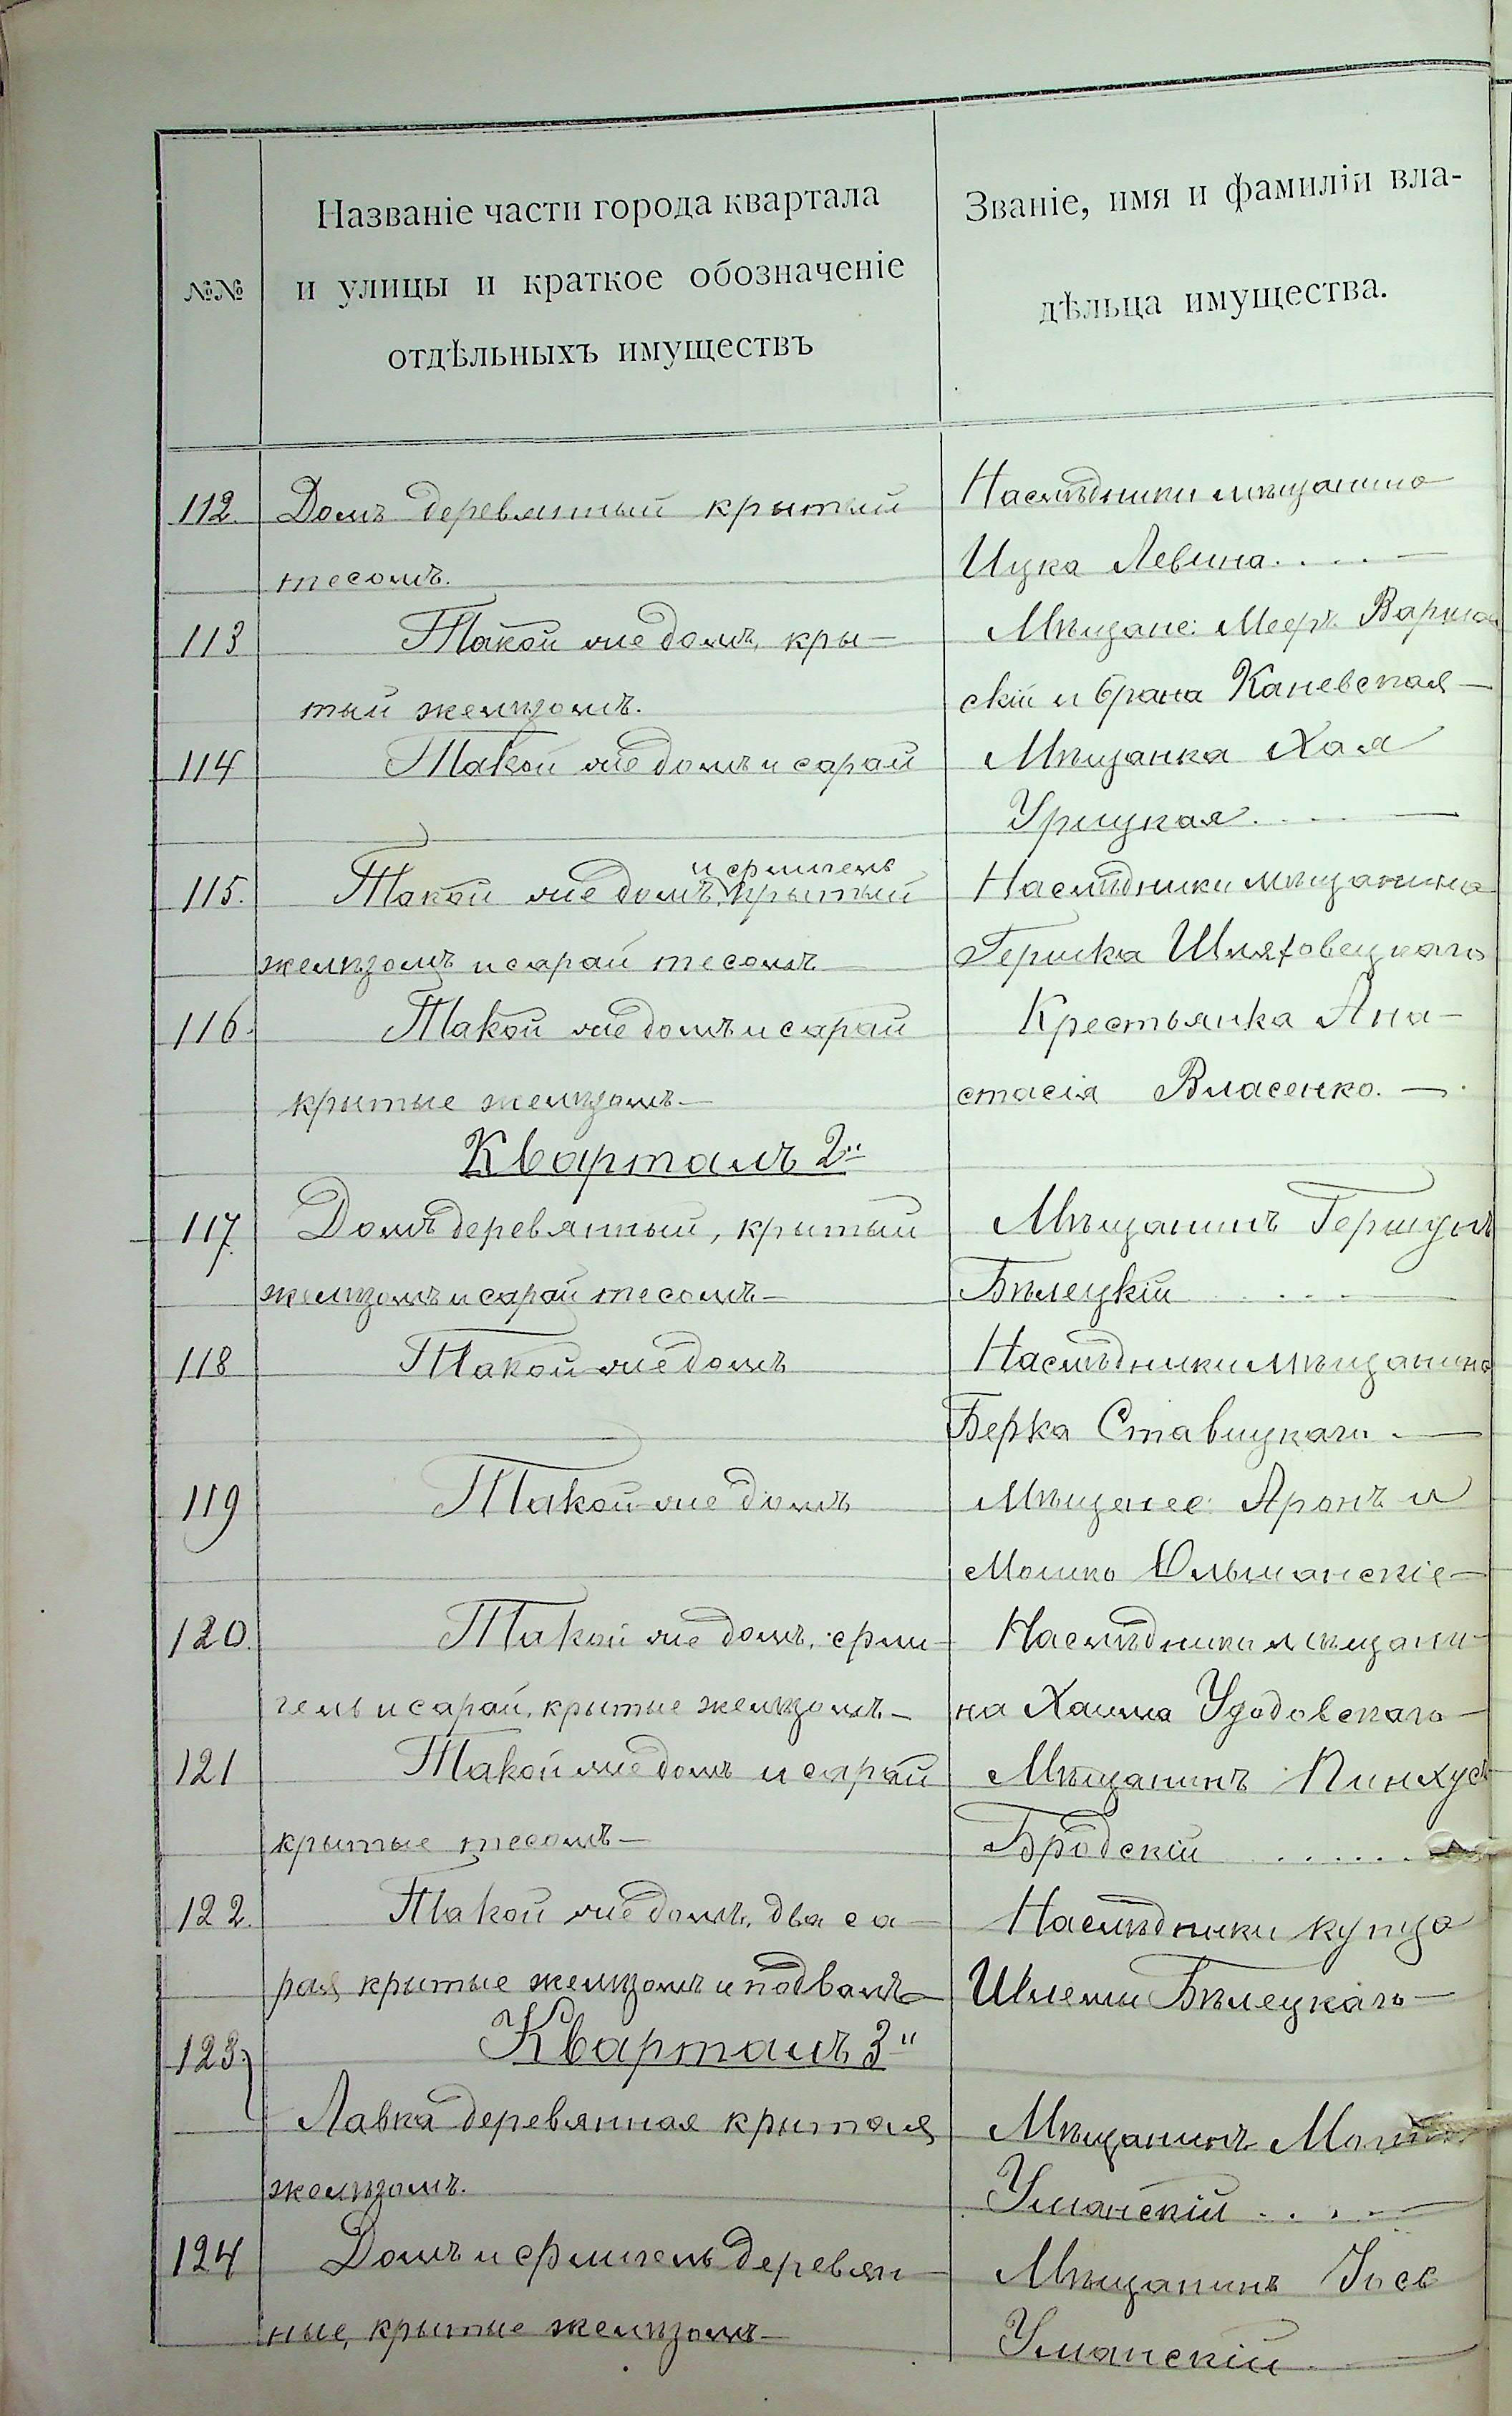 №№
Названіе части города квартала
и улицы и краткое обозначеніе
отдѣльныхъ имуществъ
Званіе, имя и фамиліи вла-
дѣльца имущества.
112. Домъ деревянный крытый
тесомъ.
Наслѣдники мѣщанина
Ицка Левина. . . . —
113 Такой же домъ, кры-
тый желѣзомъ.
Мѣщане: Мееръ Варшав
скій и Брана Каневская —
114 Такой же домъ и сарай
Мѣщанка Хая
Урицкая. . . . —
115. Такой же домъ и флигель крытый
желѣзомъ и сарай тесомъ
Наслѣдники мѣщанина
Гершка Шляховецкаго
116. Такой же домъ и сарай
крытые желѣзомъ —
Крестьянка Ана-
стасія Власенко. —
Кварталъ 2й
117. Домъ деревянный, крытый
желѣзомъ и сарай тесомъ —
Мѣщанинъ Гершунъ
Бѣлецкій . . . . —
118 Такой же домъ
Наслѣдники мѣщанина
Берка Ставицкаго. —
119 Такой же домъ
Мѣщане: Аронъ и
Мошко Ольшанскіе —
120. Такой же домъ, фли-
гель и сарай, крытые желѣзомъ —
Наслѣдники мѣщани-
на Хаима Удодовскаго —
121 Такой же домъ и сарай
крытые тесомъ —
Мѣщанинъ Пинхусъ
Бродскій . . . . . .
122. Такой же домъ, два са-
рая, крытые желѣзомъ и подвалъ —
Наслѣдники купца
Шлемы Бѣлецкаго —
Кварталъ 3й
123. Лавка деревянная крытая
желѣзомъ.
Мѣщанинъ
Уманскій . . . —
124 Домъ и флигель деревян-
ные, крытые желѣзомъ —
Мѣщанинъ Іосъ
Уманскій —